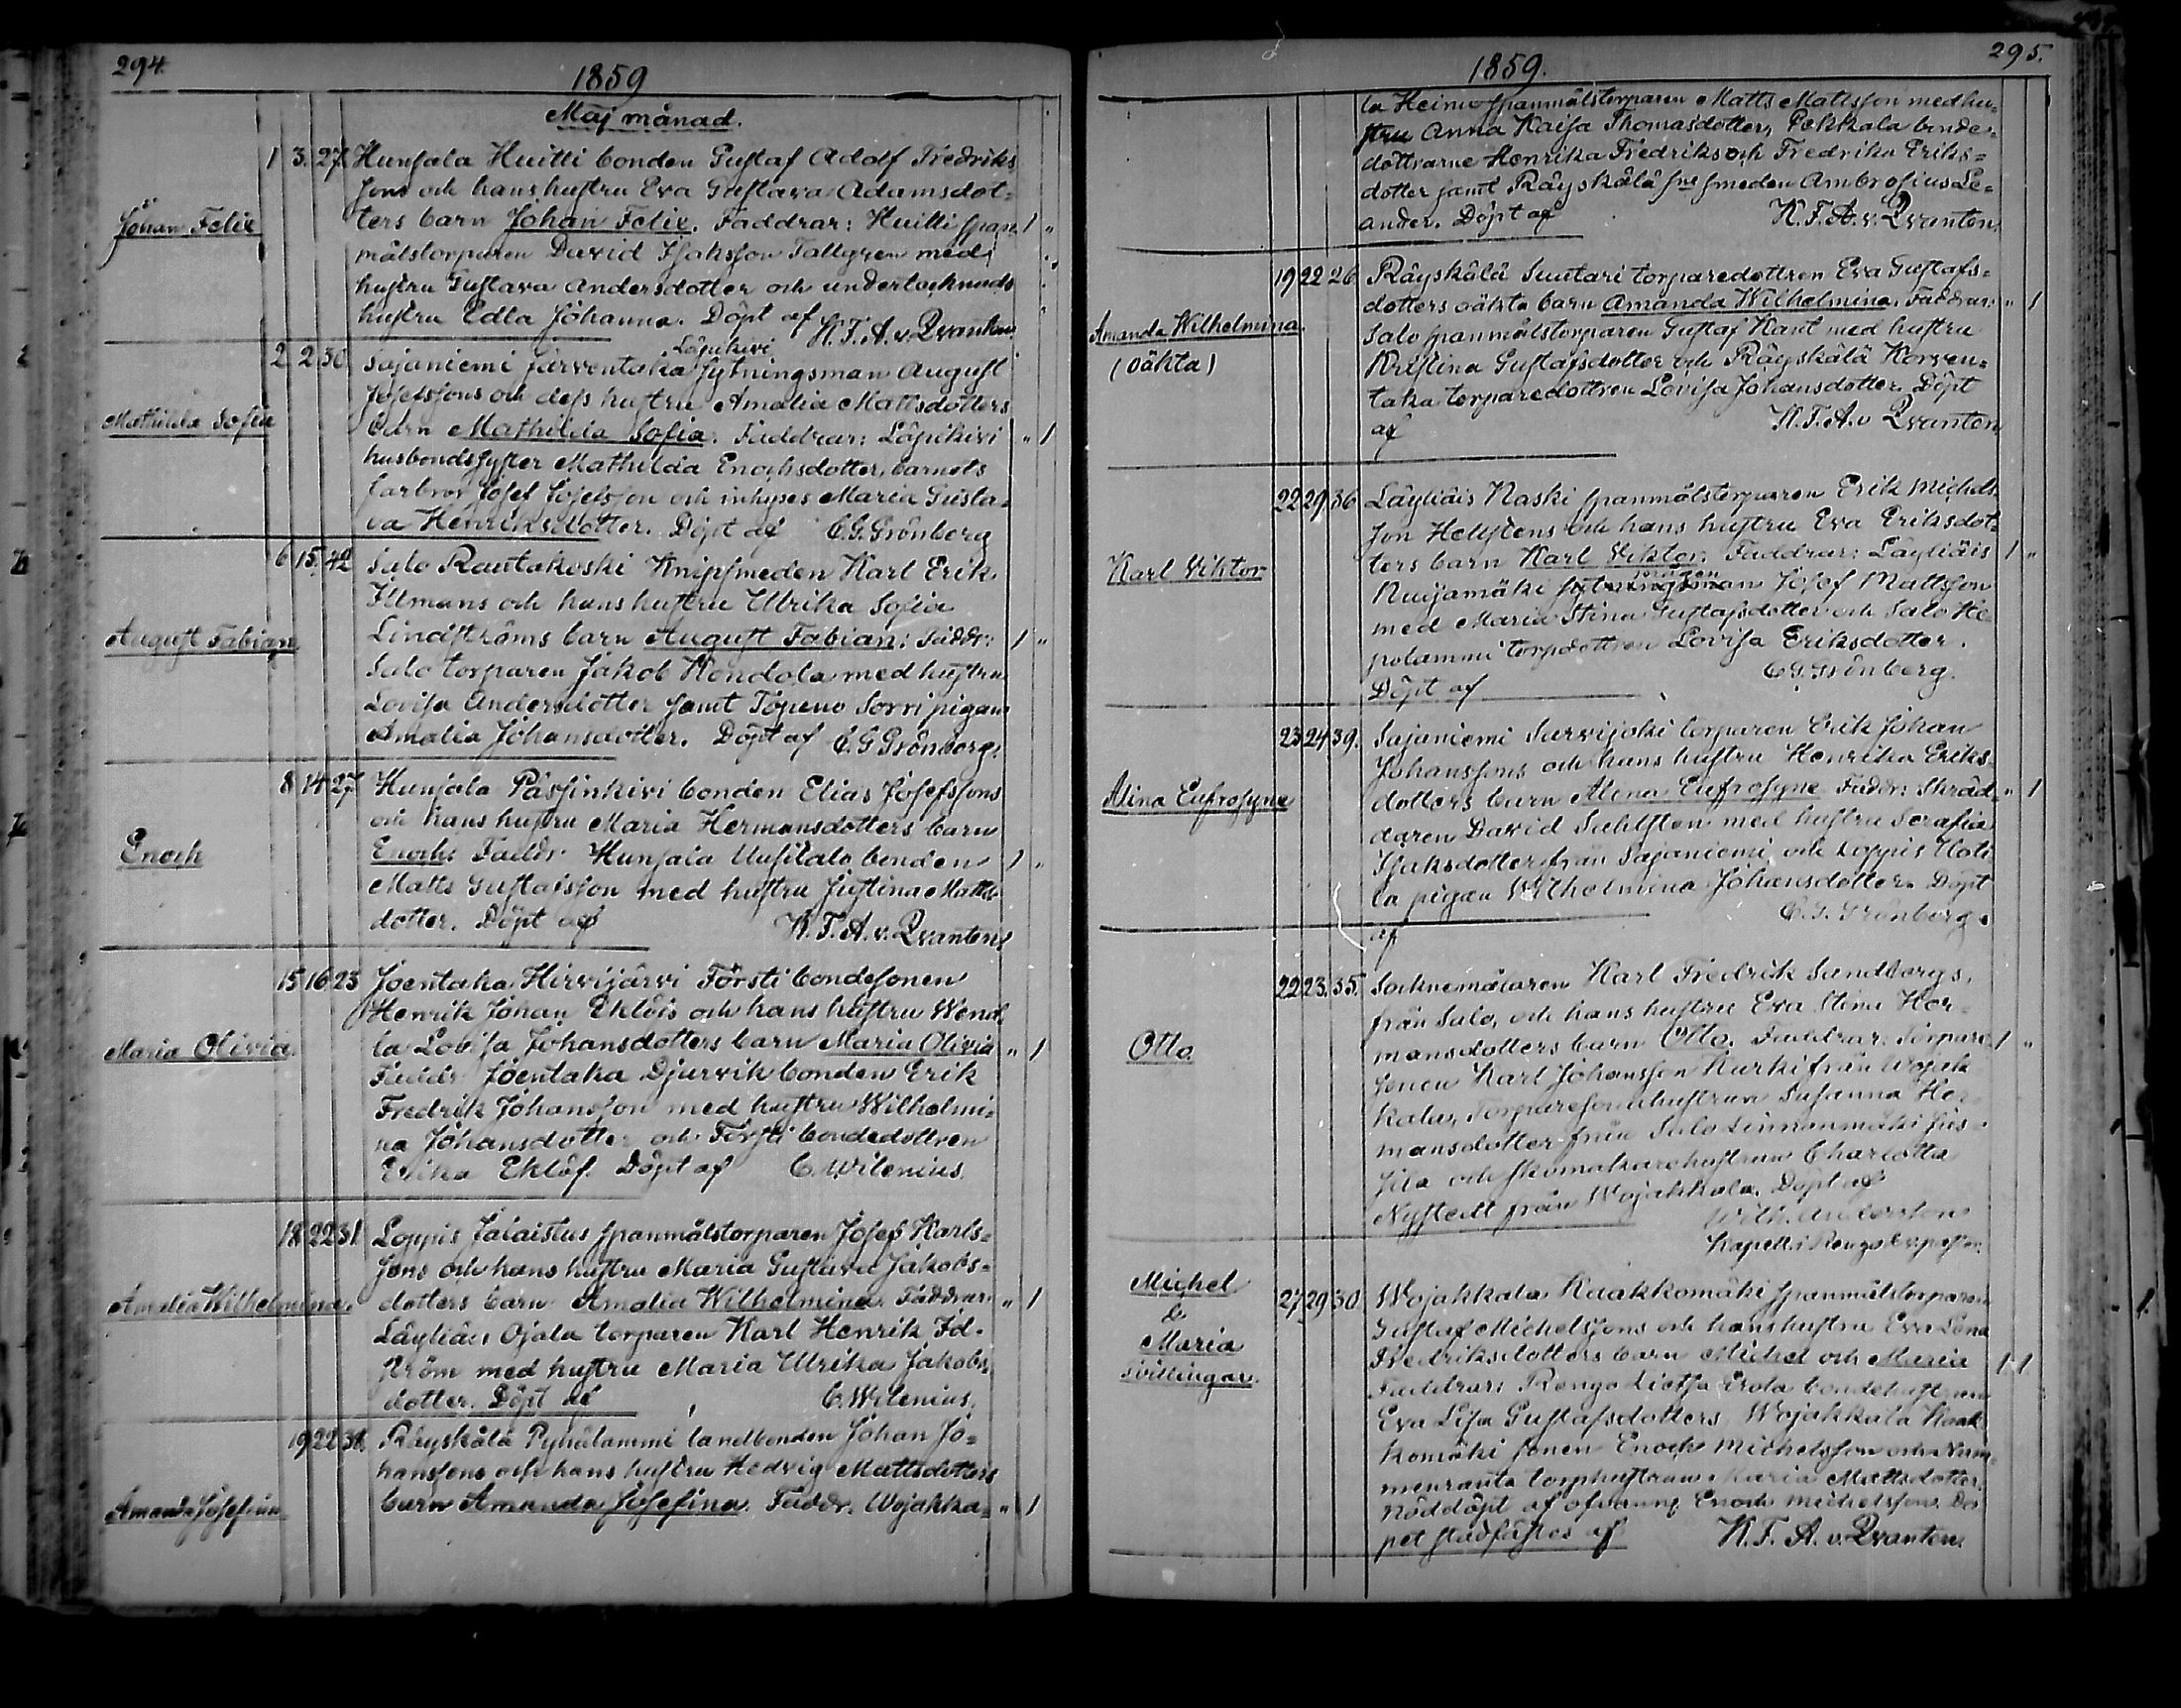 294.
1859
Maj månad.
Johan Felix
1 3. 27. Hunsala Huitti bonden Gustaf Adolf Fredriks
sons och hans hustru Eva Gustava Adamsdot=
ters barn Johan Felix. Faddrar: Huitti span= 1 "
målstorparen David Isaksson Tallgren med
hustru Gustava Andersdotter och undertecknads
hustru Edla Johanna. Döpt af K. F. A. v. Qvanten.
Läpikivi
Mathilda Sofia
2 2 30 Sajaniemi Järventaka sytningsman August
Josefssons och dess hustru Amalia Mattsdotters
barn Mathilda Sofia. Faddrar: Läpikivi " 1
husbondssyster Mathilda Enochsdotter, barnets
farbror Josef Josefsson och inhyses Maria Gusta=
va Henriksdotter. Döpt af C. G. Grönberg
August Fabian
6 15. 42 Salo Rautakoski Knipsmeden Karl Erik
Illmans och hans hustru Ulrika Sofia
Lindströms barn August Fabian: Faddr: 1 "
Salo torparen Jakob Kondola med hustru
Lovisa Andersdotter samt Topeno Sorri pigan
Amalia Johansdotter. Döpt af C. G Grönberg.
Enoch
8 14 27 Hunsala Pässinkivi bonden Elias Josefssons
och hans hustru Maria Hermansdotters barn
Enoch: Faddr. Hunsala Uusitalo bonden 1 "
Matts Gustafsson med hustru Justina Matts
dotter. Döpt af K. F. A. v. Qvanten
Maria Olivia
15 16 23 Joentaka Hirvijärvi Försti bondesonen
Henrik Johan Eklöfs och hans hustru Wend=
la Lovisa Johansdotters barn Maria Olivia " 1
Faddr: Joentaka Djurvik bonden Erik
Fredrik Johansson med hustru Wilhelmi=
na Johansdotter och Försti bondedottren
Erika Eklöf. Döpt af C. Wilenius.
Amalia Wilhelmina.
18 22 31 Loppis Jalaistus spanmålstorparen Josef Karls=
sons och hans hustru Maria Gustava Jakobs=
dotters barn Amalia Wilhelmina. Faddrar: " 1
Läyliäis Ojala torparen Karl Henrik Id=
ström med hustru Maria Ulrika Jakobs=
dotter. Döpt af C. Wilenius.
Amanda Josefina
19 22 Räyskälä Pyhälammi landbonden Johan Jo=
hanssons och hans hustru Hedvig Mattsdotters
barn Amanda Josefina. Faddr. Wojakka= " 1
295.
1859.
la Heimo spanmålstorparen Matts Mattsson med hu=
stru Anna Kaisa Thomasdotter, Pekkala bonde=
döttrarne Henrika Fredriks och Fredrika Eriks=
dotter samt Räyskälä smeden Ambrosius Le=
ander. Döpt af K. F. A. v. Qvanten.
Amanda Wilhelmina.
(oäkta)
19 22 26 Räyskälä Suutari torparedottren Eva Gustafs=
dotters oäkta barn Amanda Wilhelmina. Faddrar: " 1
Salo spanmålstorparen Gustaf Kant med hustru
Kristina Gustafsdotter och Räyskälä Korven=
taka torparedottren Lovisa Johansdotter. Döpt
af K. F. A. v Qvanten
Karl Viktor
22 29 36 Läyliäis Kaski spanmålstorparen Erik Michels
son Helsténs och hans hustru Eva Eriksdot=
ters barn Karl Viktor. Faddrar: Läyliäis 1 "
Ruijamäki sytningsman Josef Mattsson
med Maria Stina Gustafsdotter och Salo He=
polammi torpdottren Lovisa Eriksdotter.
Döpt af C G. Grönberg.
Alina Eufrosyne
23 24 39. Sajaniemi Sarvijoki torparen Erik Johan
Johanssons och hans hustru Henrika Eriks=
dotters barn Alina Eufrosyne Faddr: Skräd= " 1
daren David Sahlsten med hustru Serafia
Isaksdotter från Sajaniemi och Loppis
la pigan Wilhelmina Johansdotter. Döpt
af C. G. Grönberg.
Otto.
22 23. 35. Socknemålaren Karl Fredrik Sandbergs,
från Salo, och hans hustru Eva Stina Her=
mansdotters barn Otto. Faddrar: Torpare= 1 "
sonen Karl Johansson Kurki från Wojak
kala, Torparesonhustrun Susanna Her=
mansdotter från Salo
och skomakarehustrun Charlotta
Nystedt från Wojakkala. Döpt af
Wilh. Andersson
Kapell. i Rengo
Michel
&
Maria
tvillingar.
27 29 30 Wojakkala Kaakkomäki spanmålstorparen
Gustaf Michelssons och hans hustru Eva Lena
Fredriksdotters barn Michel och Maria 1 1
Faddrar: Rengo Erola bondehustrun
Eva Lisa Gustafsdotters, Wojakkala Kaak=
komäki sonen Enoch Michelsson och Num=
menranta torphustrun Maria Mattsdotter.
Nöddöpt af ofvannde Enoch Michelsson. Do=
pet stadfästes af K. F. A. v. Qvanten.